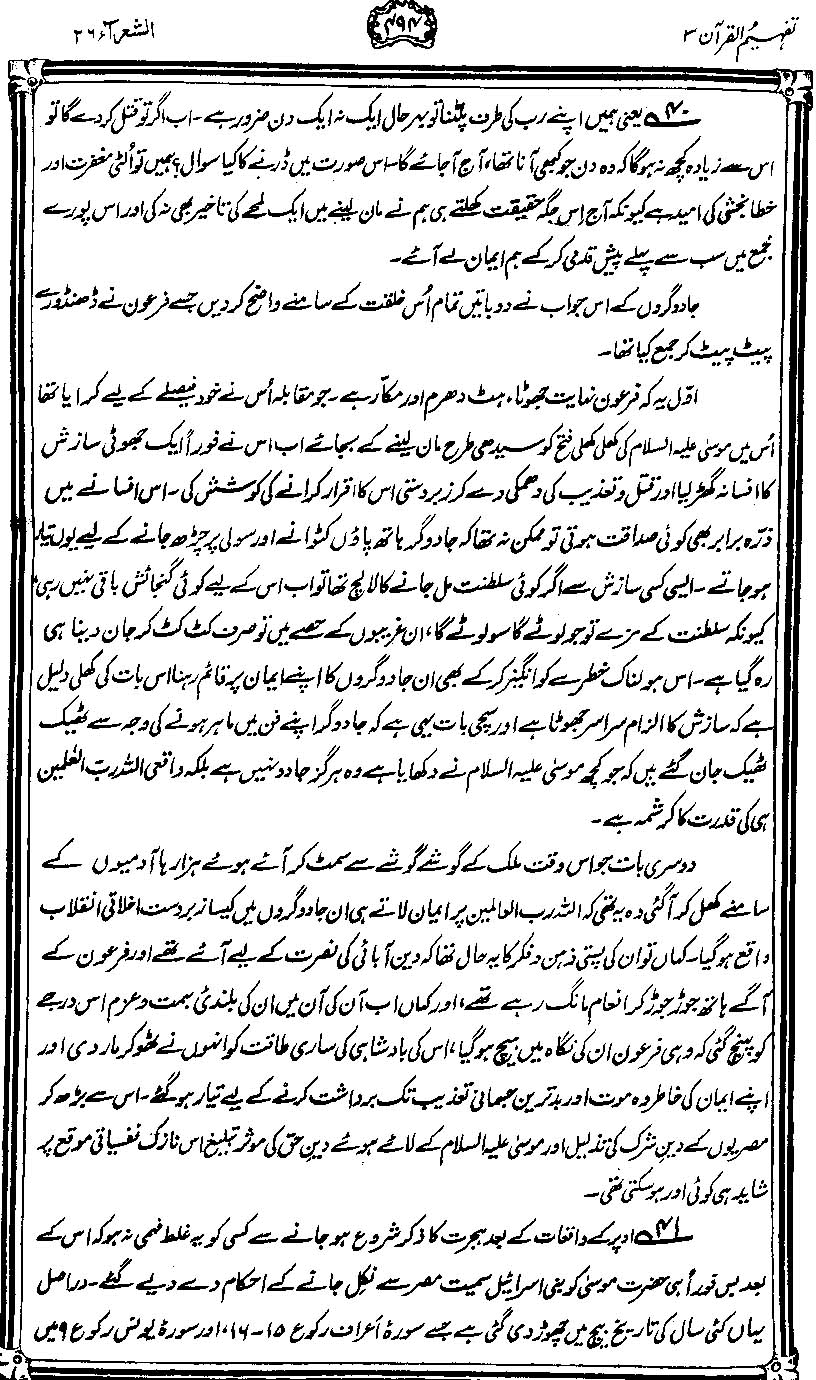 تفہیم القرآن ۳
۴۹۴
الشعراء ۲۶
۴۰ یعنی ہمیں اپنے رب کی طرف پلٹنا تو بہر حال ایک نہ ایک دن ضرور ہے۔ اب اگر تو قتل کر دے گا تو
اس سے زیادہ کچھ نہ ہوگا کہ وہ دن جو کبھی آنا تھا، آج آ جائے گا۔ اس صورت میں ڈرنے کا کیا سوال؟ ہمیں تو اُلٹی مغفرت اور
خطا بخشی کی امید ہے کیونکہ آج اِس جگہ حقیقت کھلتے ہی ہم نے مان لینے میں ایک لمحے کی تاخیر بھی نہ کی اور اس پورے
مجمع میں سب سے پہلے پیش قدمی کر کے ہم ایمان لے آئے۔
جادوگروں کے اس جواب نے دو باتیں تمام اُس خلقت کے سامنے واضح کر دیں جسے فرعون نے ڈھنڈورے
پیٹ پیٹ کر جمع کیا تھا۔
اوّل یہ کہ فرعون نہایت جھوٹا، ہٹ دھرم اور مکّار ہے۔ جو مقابلہ اُس نے خود فیصلے کے لیے کرایا تھا
اُس میں موسیٰ علیہ السلام کی کھلی کھلی فتح کو سیدھی طرح مان لینے کے بجائے اب اس نے فوراً ایک جھوٹی سازش
کا افسانہ گھڑ لیا اور قتل و تعذیب کی دھمکی دے کر زبردستی اس کا اقرار کرانے کی کوشش کی۔ اس افسانے میں
ذرّہ برابر بھی کوئی صداقت ہوتی تو ممکن نہ تھا کہ جادوگر ہاتھ پاؤں کٹوانے اور سولی پر چڑھ جانے کے لیے یوں تیار
ہو جاتے۔ ایسی کسی سازش سے اگر کوئی سلطنت مل جانے کا لالچ تھا تو اب اس کے لیے کوئی گنجائش باقی نہیں رہی،
کیونکہ سلطنت کے مزے تو جو لوٹے گا سو لوٹے گا، ان غریبوں کے حصے میں تو صرف کٹ کٹ کر جان دینا ہی
رہ گیا ہے۔ اس ہولناک خطرے کو انگیز کر کے بھی ان جادوگروں کا اپنے ایمان پر قائم رہنا اس بات کی کھلی دلیل
ہے کہ سازش کا الزام سراسر جھوٹا ہے اور سچی بات یہی ہے کہ جادوگر اپنے فن میں ماہر ہونے کی وجہ سے ٹھیک
ٹھیک جان گئے ہیں کہ جو کچھ موسیٰ علیہ السلام نے دکھایا ہے وہ ہرگز جادو نہیں ہے بلکہ واقعی اللہ رب العٰلمین
ہی کی قدرت کا کرشمہ ہے۔
دوسری بات جو اس وقت ملک کے گوشے گوشے سے سمٹ کر آئے ہوئے ہزارہا آدمیوں کے
سامنے کھل کر آ گئی وہ یہ تھی کہ اللہ رب العالمین پر ایمان لاتے ہی ان جادوگروں میں کیسا زبردست اخلاقی انقلاب
واقع ہو گیا۔ کہاں تو ان کی پستی ذہن و فکر کا یہ حال تھا کہ دین آبائی کی نصرت کے لیے آئے تھے اور فرعون کے
آگے ہاتھ جوڑ جوڑ کر انعام مانگ رہے تھے، اور کہاں اب آن کی آن میں ان کی بلندئ ہمت و عزم اس درجے
کو پہنچ گئی کہ وہی فرعون ان کی نگاہ میں ہیچ ہو گیا، اس کی بادشاہی کی ساری طاقت کو انہوں نے ٹھوکر مار دی اور
اپنے ایمان کی خاطر وہ موت اور بدترین جسمانی تعذیب تک برداشت کرنے کے لیے تیار ہو گئے۔ اس سے بڑھ کر
مصریوں کے دینِ شرک کی تذلیل اور موسیٰ علیہ السلام کے لائے ہوئے دینِ حق کی موثر تبلیغ اس نازک نفسیاتی موقع پر
شاید ہی کوئی اور ہو سکتی تھی۔
۴۱ اوپر کے واقعات کے بعد ہجرت کا ذکر شروع ہو جانے سے کسی کو یہ غلط فہمی نہ ہو کہ اس کے
بعد بس فوراً ہی حضرت موسیٰ کو بنی اسرائیل سمیت مصر سے نکل جانے کے احکام دے دیے گئے۔ دراصل
یہاں کئی سال کی تاریخ بیچ میں چھوڑ دی گئی ہے جسے سورۂ اعراف رکوع ۱۵-۱۶، اور سورۂ یونس رکوع ۹ میں